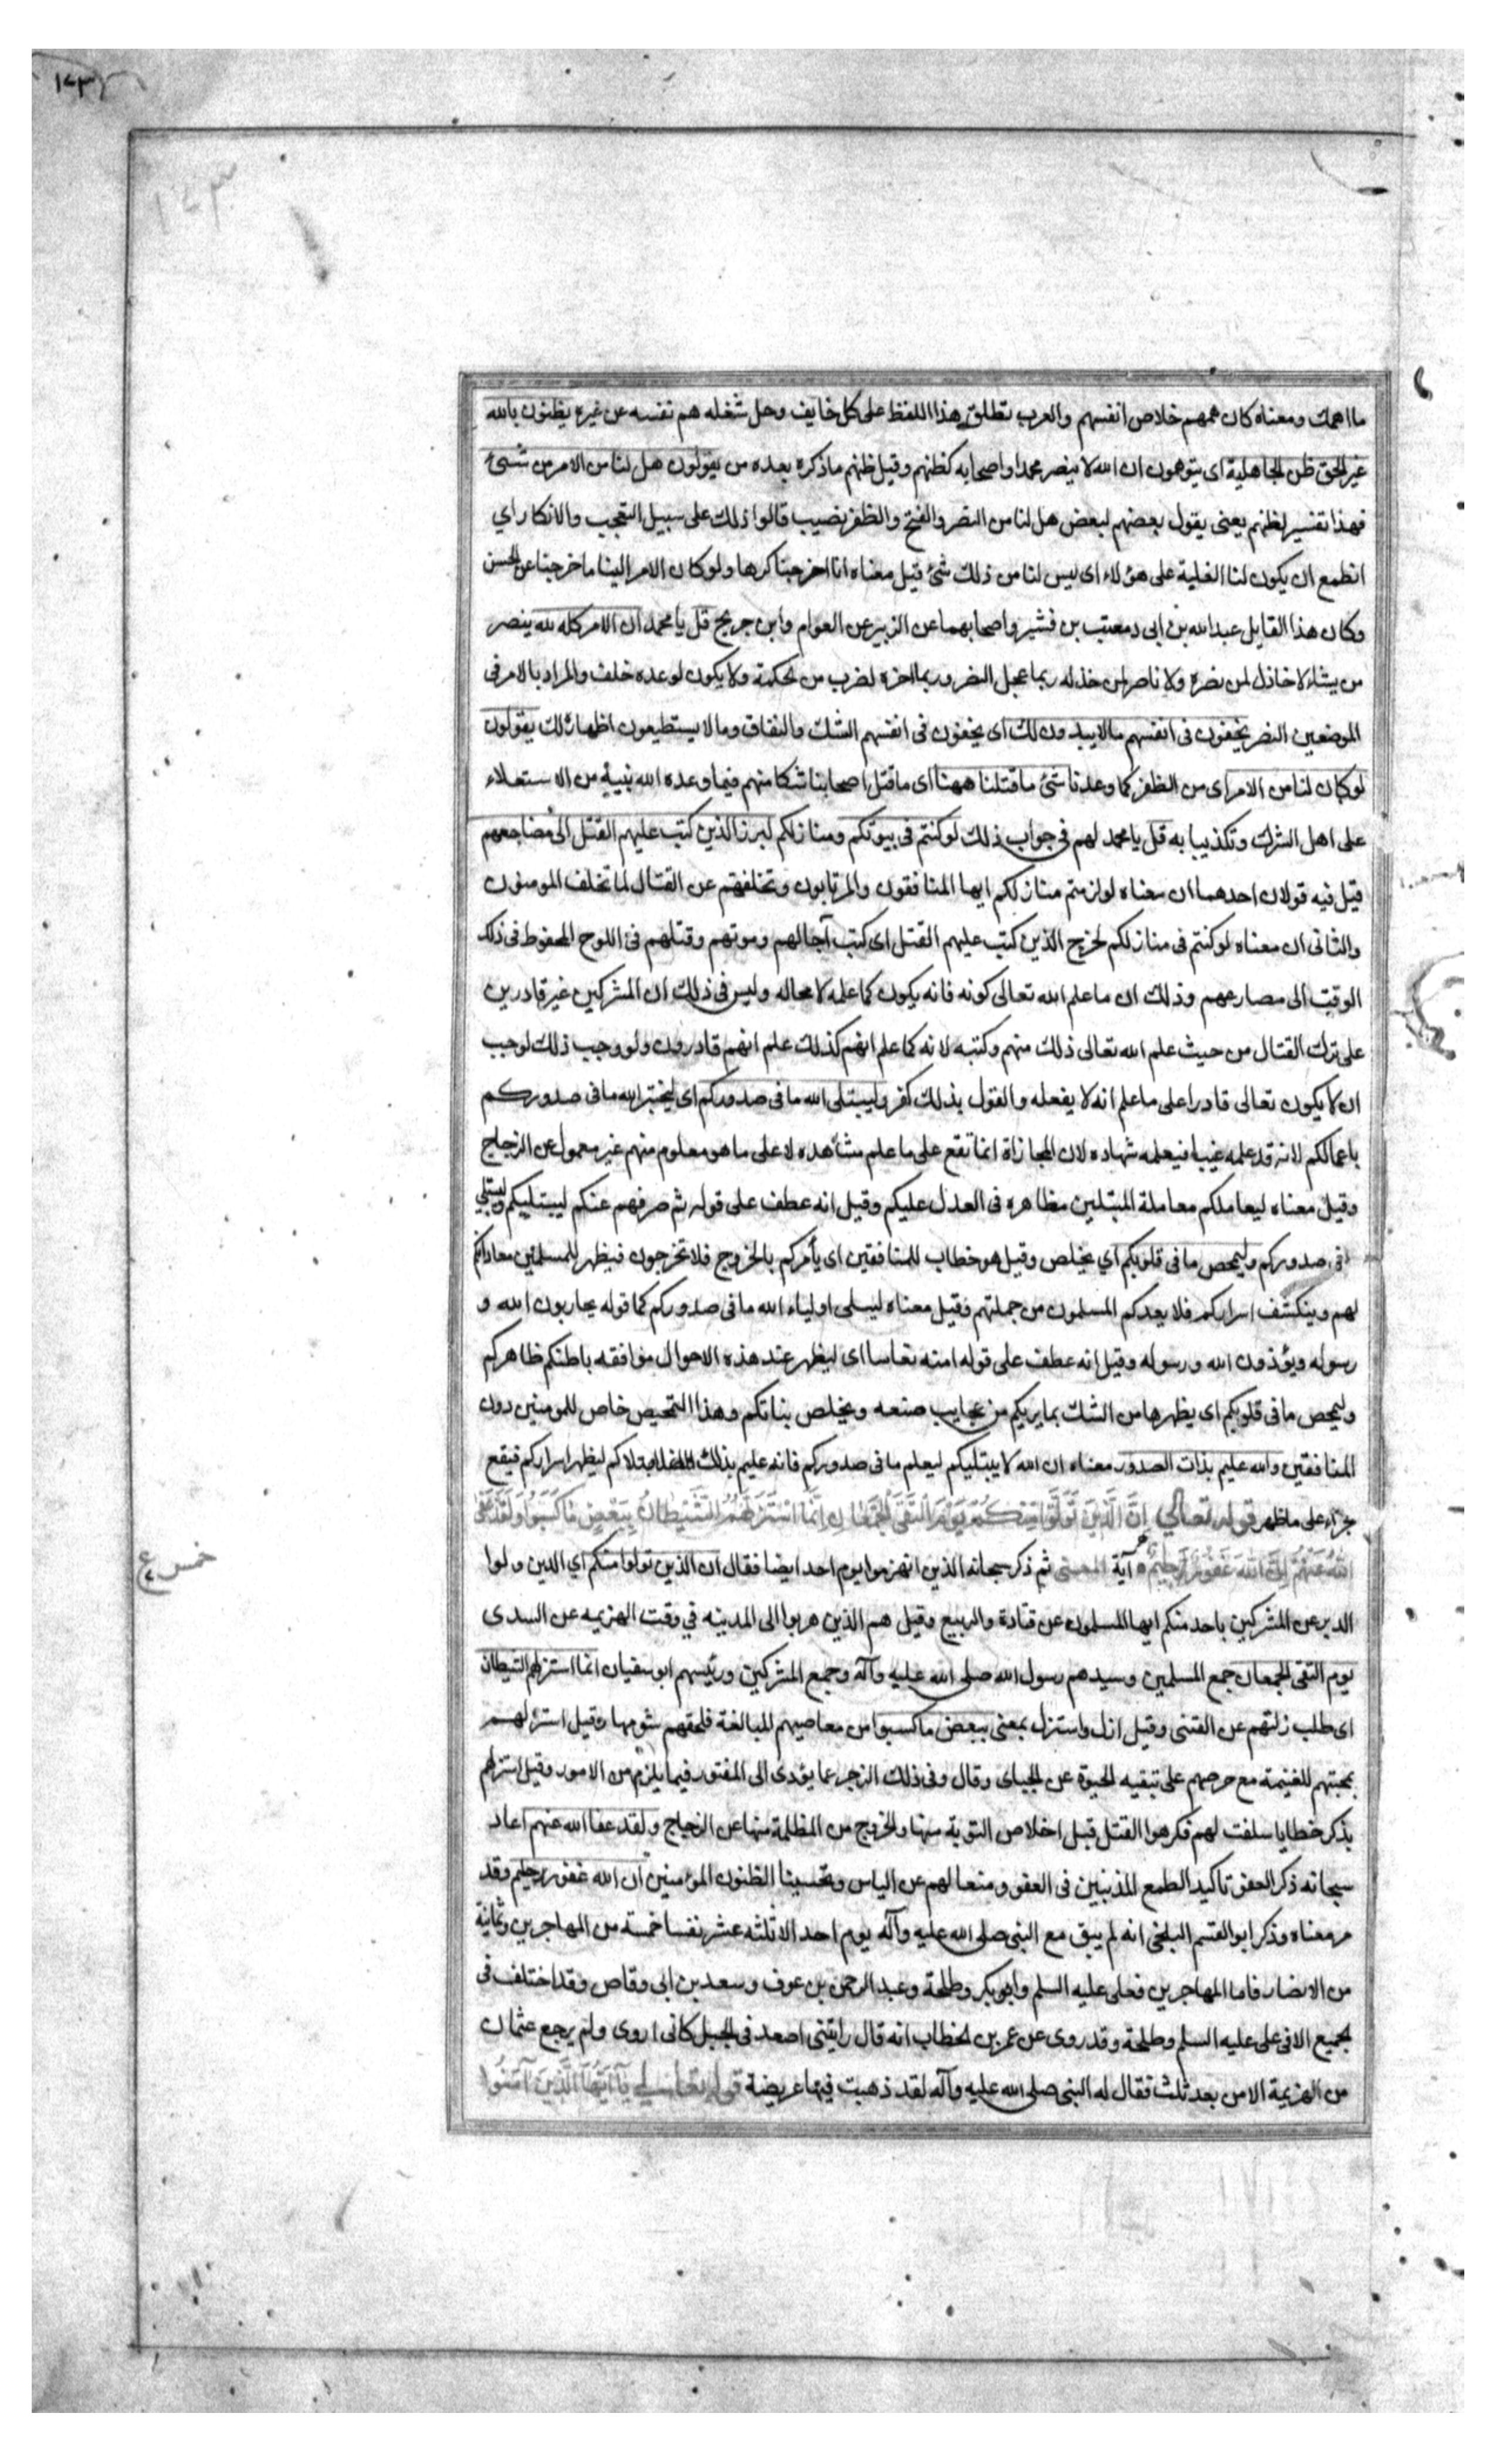 ١٧٣
١٧٣
ما اهمك ومعناه كان همهم خلاص انفسهم والعرب تطلق هذا اللفظ على كل خايف وجل شغله هم نفسه عن غيره يظنون بالله
غير الحق ظن الجاهلية اى يتوهمون ان الله لا ينصر محمدا واصحابه كظنهم وقيل ظنهم ما ذكره بعده من يقولون هل لنا من الامر من شىء
فهذا تفسير لظنهم يعنى يقول بعضهم لبعض هل لنا من النصر والفتح والظفر نصيب قالوا ذلك على سبيل التعجب والانكار اي
انطمع ان يكون لنا الغلبة على هؤلاء اى ليس لنا من ذلك شئ قيل معناه انا اخرجنا كرها ولو كان الامر الينا ما خرجنا عن الحسن
وكان هذا القايل عبد الله بن ابى ومعتب بن قشير واصحابهما عن الزبير عن العوام وابن جريج قل يا محمد ان الامر كله لله ينصر
من يشاء لا خاذل لمن نصره ولا ناصر لمن خذله ربما عجل النصر وربما اخره لضرب من الحكمة ولا يكون لوعده خلف والمراد بالامر فى
الموضعين النصر يخفون فى انفسهم ما لا يبدون لك اى يخفون فى انفسهم الشك والنفاق وما لا يستطيعون اظهاره لك يقولون
لو كان لنا من الامر اى من الظفر كما وعدنا شئ ما قتلنا ههنا اى ما قتل اصحابنا شكا منهم فيما وعده الله نبيه من الاستعلاء
على اهل الشرك وتكذيبا به قل يا محمد لهم فى جواب ذلك لو كنتم فى بيوتكم ومنازلكم لبرز الذين كتب عليهم القتل الى مضاجعهم
قيل فيه قولان احدهما ان معناه لو لزمتم منازلكم ايها المنافقون والمرتابون وتخلفتم عن القتال لما تخلف المومنون
والثانى ان معناه لو كنتم فى منازلكم لخرج الذين كتب عليهم القتل اى كتب آجالهم وموتهم وقتلهم فى اللوح المحفوظ فى ذلك
الوقت الى مصارعهم وذلك ان ما علم الله تعالى كونه فانه يكون كما علمه لا محاله وليس فى ذلك ان المشركين غير قادرين
على ترك القتال من حيث علم الله تعالى ذلك منهم وكتبه لانه كما علم انهم كذلك علم انهم قادرون ولو وجب ذلك لوجب
ان لا يكون تعالى قادرا على ما علم انه لا يفعله والقول بذلك كفر وليبتلى الله ما فى صدوركم اى ليختبر الله ما فى صدوركم
باعمالكم لانه قد علمه غيبا فيعلمه شهاده لان المجازاة انما تقع على ما علم مشاهده لا على ما هو معلوم منهم غير معمول عن الزجاج
وقيل معناه ليعاملكم معاملة المبتلين مظاهره فى العدل عليكم وقيل انه عطف على قوله ثم صرفهم عنكم ليبتليكم وليبتلي
فى صدوركم وليمحص ما فى قلوبكم اي يخلص وقيل هو خطاب للمنافقين اى يأمركم بالخروج فلا تخرجون فيظهر للمسلمين معاداتكم
لهم وينكشف اسراركم فلا يعدكم المسلمون من جملتهم وقيل معناه ليبتلى اولياء الله ما فى صدوركم كما قوله يحاربون الله و
رسوله ويؤذون الله ورسوله وقيل انه عطف على قوله امنه نعاسا اى ليظهر عند هذه الاحوال موافقه باطنكم ظاهركم
وليمحص ما فى قلوبكم اى يطهرها من الشك بما يريكم من عجايب صنعه ويخلص نياتكم وهذا التمحيص خاص للمومنين دون
المنافقين والله عليم بذات الصدور معناه ان الله لا يبتليكم ليعلم ما فى صدوركم فانه عليم بذلك ابتلاكم ليظهر اسراركم فيقع
جزاء على ما ظهر قوله تعالى اِنَّ الَّذِينَ تَوَلَّوْا مِنْكُمْ يَوْمَ الْتَقَى الْجَمْعَانِ اِنَّمَا اسْتَزَلَّهُمُ الشَّيْطَانُ بِبَعْضِ مَا كَسَبُوا وَلَقَدْ عَفَى
اللّٰهُ عَنْهُمْ اِنَّ اللّٰهَ غَفُورٌ حَلِيمٌ آية المعنى ثم ذكر سبحانه الذين انهزموا يوم احد ايضا فقال ان الذين تولوا منكم اي الذين ولوا
الدبر عن المشركين باحد منكم ايها المسلمون عن قتادة والربيع وقيل هم الذين هربوا الى المدينه في وقت الهزيمه عن السدى
يوم التقى الجمعان جمع المسلمين وسيدهم رسول الله صلى الله عليه وآله وجمع المشركين ورئيسهم ابو سفيان انما استزلهم الشيطان
اى طلب زلتهم عن القتيى وقيل ازل واستزل بمعنى ببعض ما كسبوا من معاصيهم للمبالغة فلحقهم شومها وقيل استزلهم
بمحبتهم للغنيمة مع حرصهم على تبقيه الحيوة عن الجباى وقال وفى ذلك الزجر عما يؤدى الى الفتور فيما يلزم من الامور وقيل استزلهم
بذكر خطايا سلفت لهم فكرهوا القتل قبل اخلاص التوبة منها والخروج من المظلمة منها عن الزجاج ولقد عفا الله عنهم اعاد
سبحانه ذكر العفو تاكيد الطمع المذنبين فى العفو ومنعا لهم عن الياس وتحسينا لظنون المؤمنين ان الله غفور حليم وقد
مر معناه وذكر ابو القسم البلخى انه لم يبق مع النبى صلى الله عليه وآله يوم احد الا ثلثه عشر نفسا خمسة من المهاجرين وثمانية
من الانصار فاما المهاجرين فعلى عليه السلم وابو بكر وطلحة وعبد الرحمن بن عوف وسعد بن ابى وقاص وقد اختلف فى
الجميع الا فى على عليه السلم وطلحة وقد روى عن عمر بن الخطاب انه قال رايتنى اصعد فى الجبل كانى اروى ولم يرجع عثمان
من الهزيمة الا من بعد ثلث فقال له النبى صلى الله عليه وآله لقد ذهبت فيها عريضة قوله تعالى يَا أَيُّهَا الَّذِينَ آمَنُوا